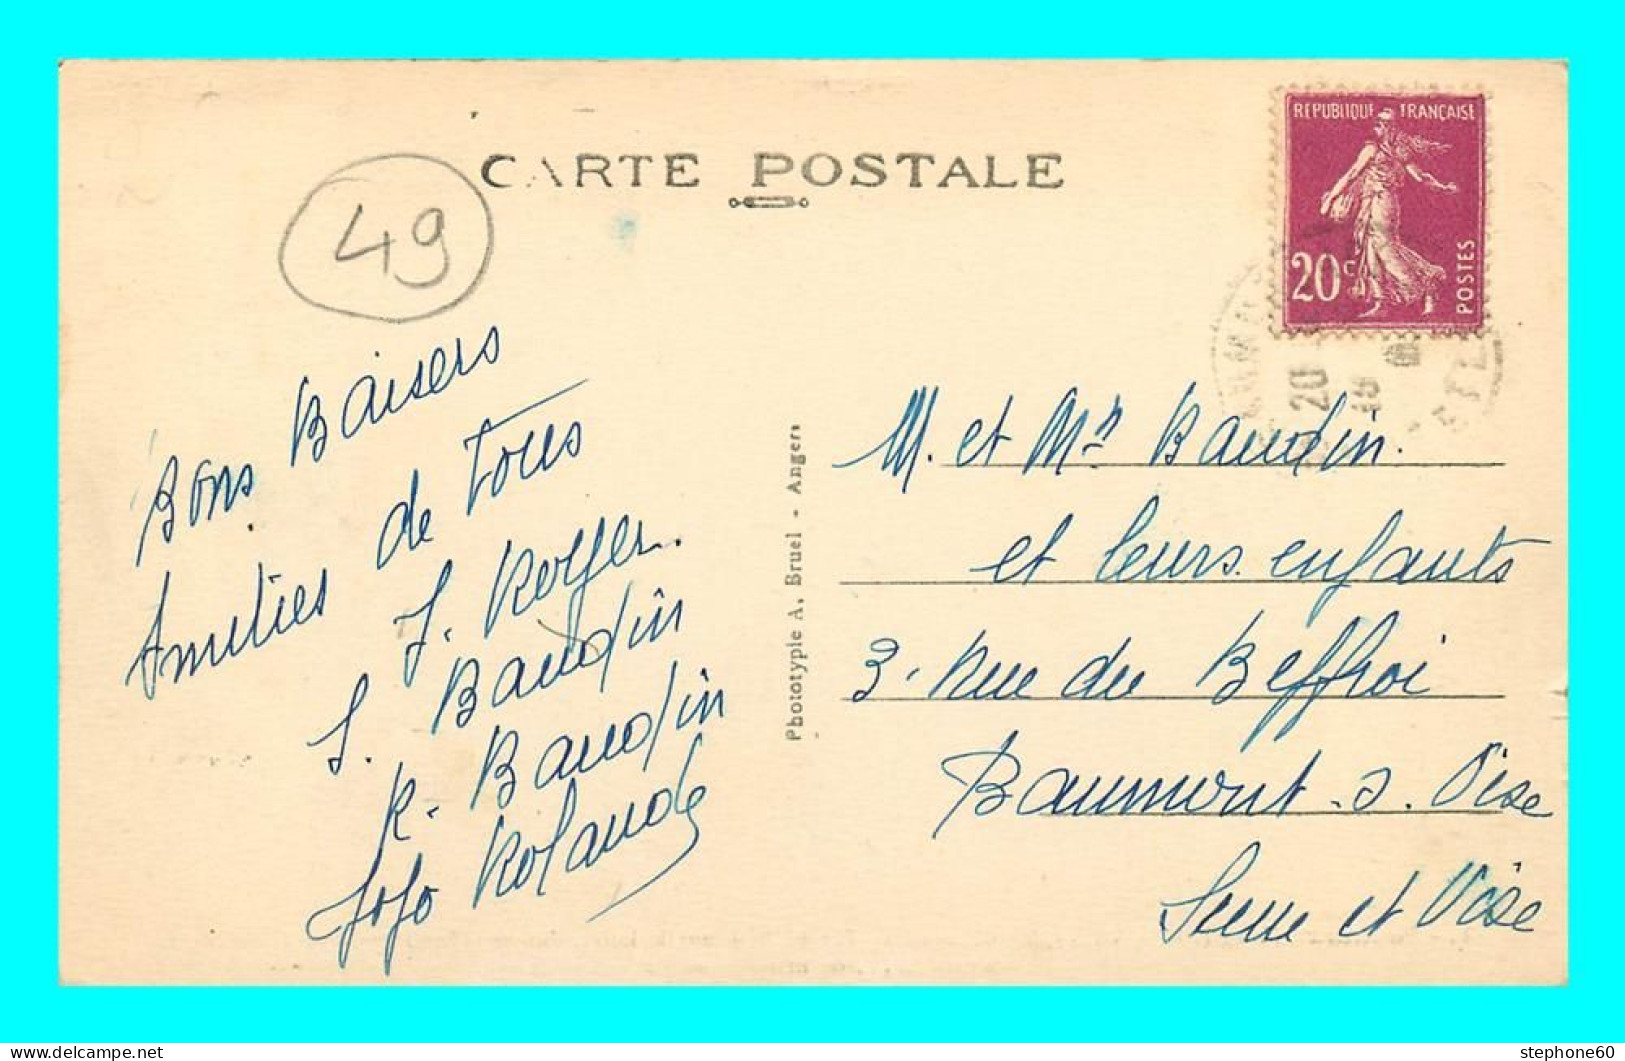 CARTE POSTALE
49
REPUBLIQUE FRANÇAISE
20c
POSTES
20
Bons Baisers
Amitiés de Tous
J. Roger.
S. Baudin
R. Baudin
Jojo Rolande
Phototypie A. Bruel - Angers
M. et Mme Baudin.
et leurs enfants
3. Rue du Beffroi
Baumont. s. Oise
Seine et Oise
stephone60